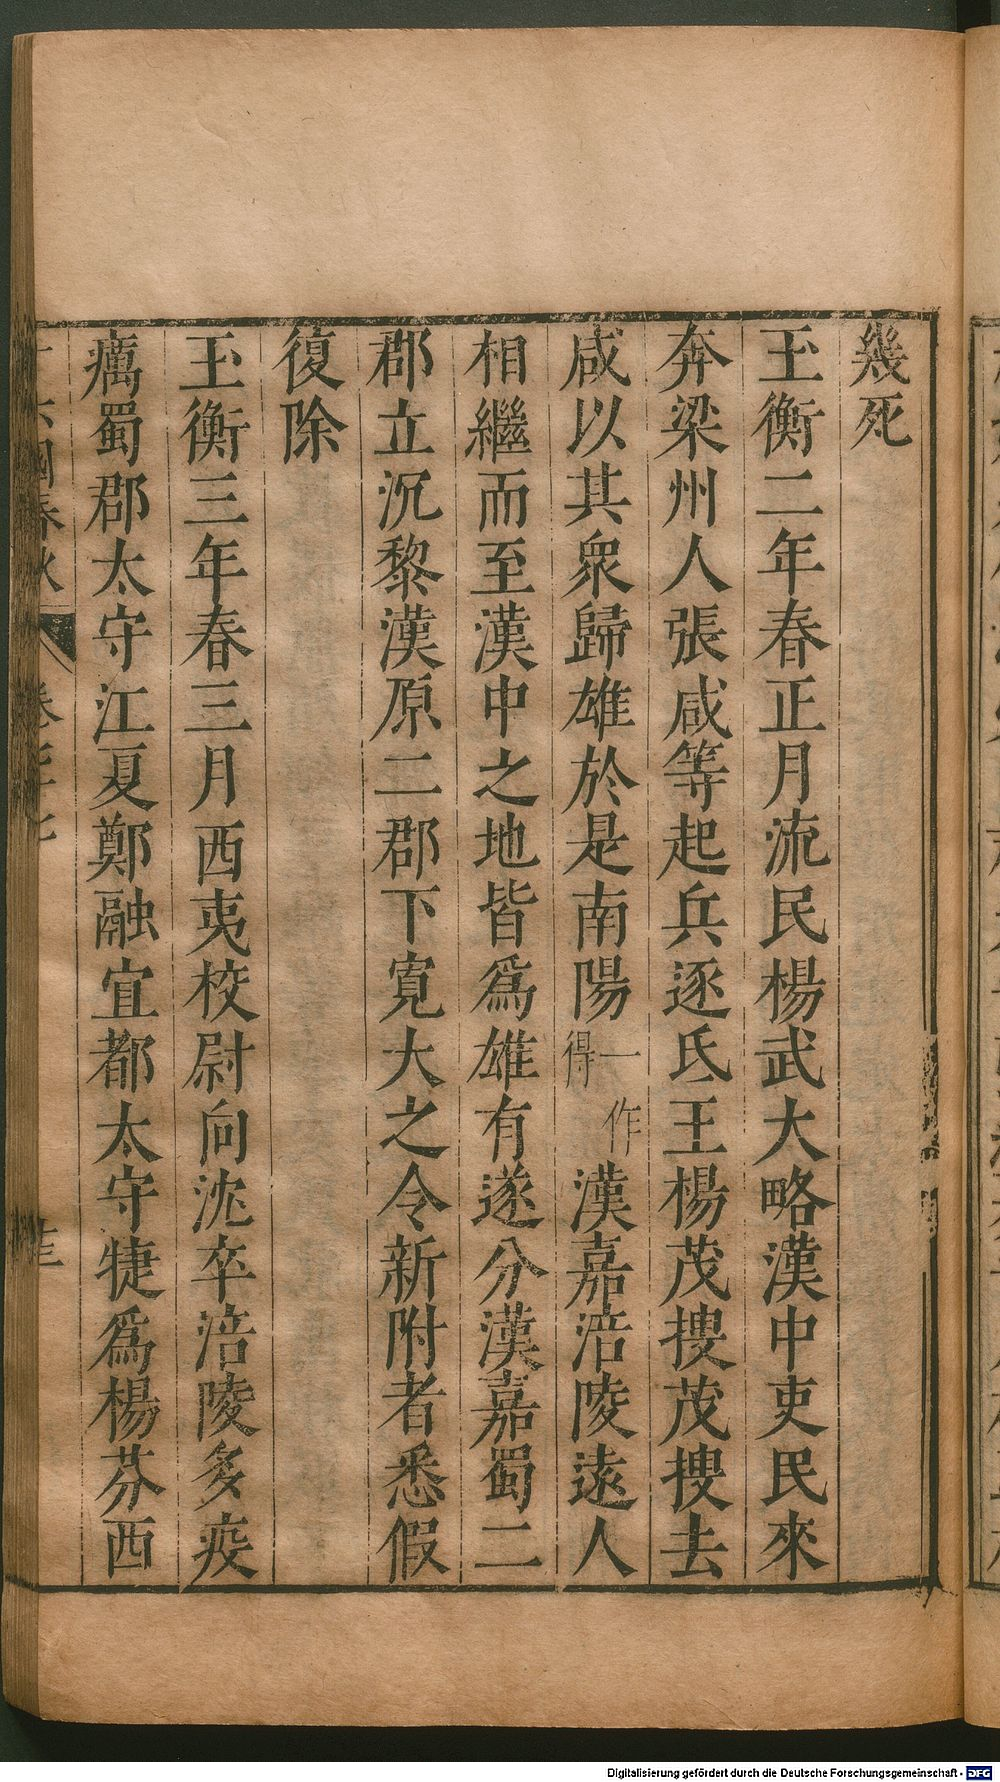 幾死
玉衡二年春正月流民楊武大略漢中吏民來
奔梁州人張咸等起兵逐氐王楊茂搜茂搜去
咸以其衆歸雄於是南陽一作得漢嘉涪陵遠人
相繼而至漢中之地皆爲雄有遂分漢嘉蜀二
郡立沉黎漢原二郡下寬大之令新附者悉假
復除
玉衡三年春三月西夷校尉向沈卒涪陵多疫
癘蜀郡太守江夏鄭融宜都太守犍爲楊芬西
十六國春秋 卷
Digitalisierung gefördert durch die Deutsche Forschungsgemeinschaft - DFG